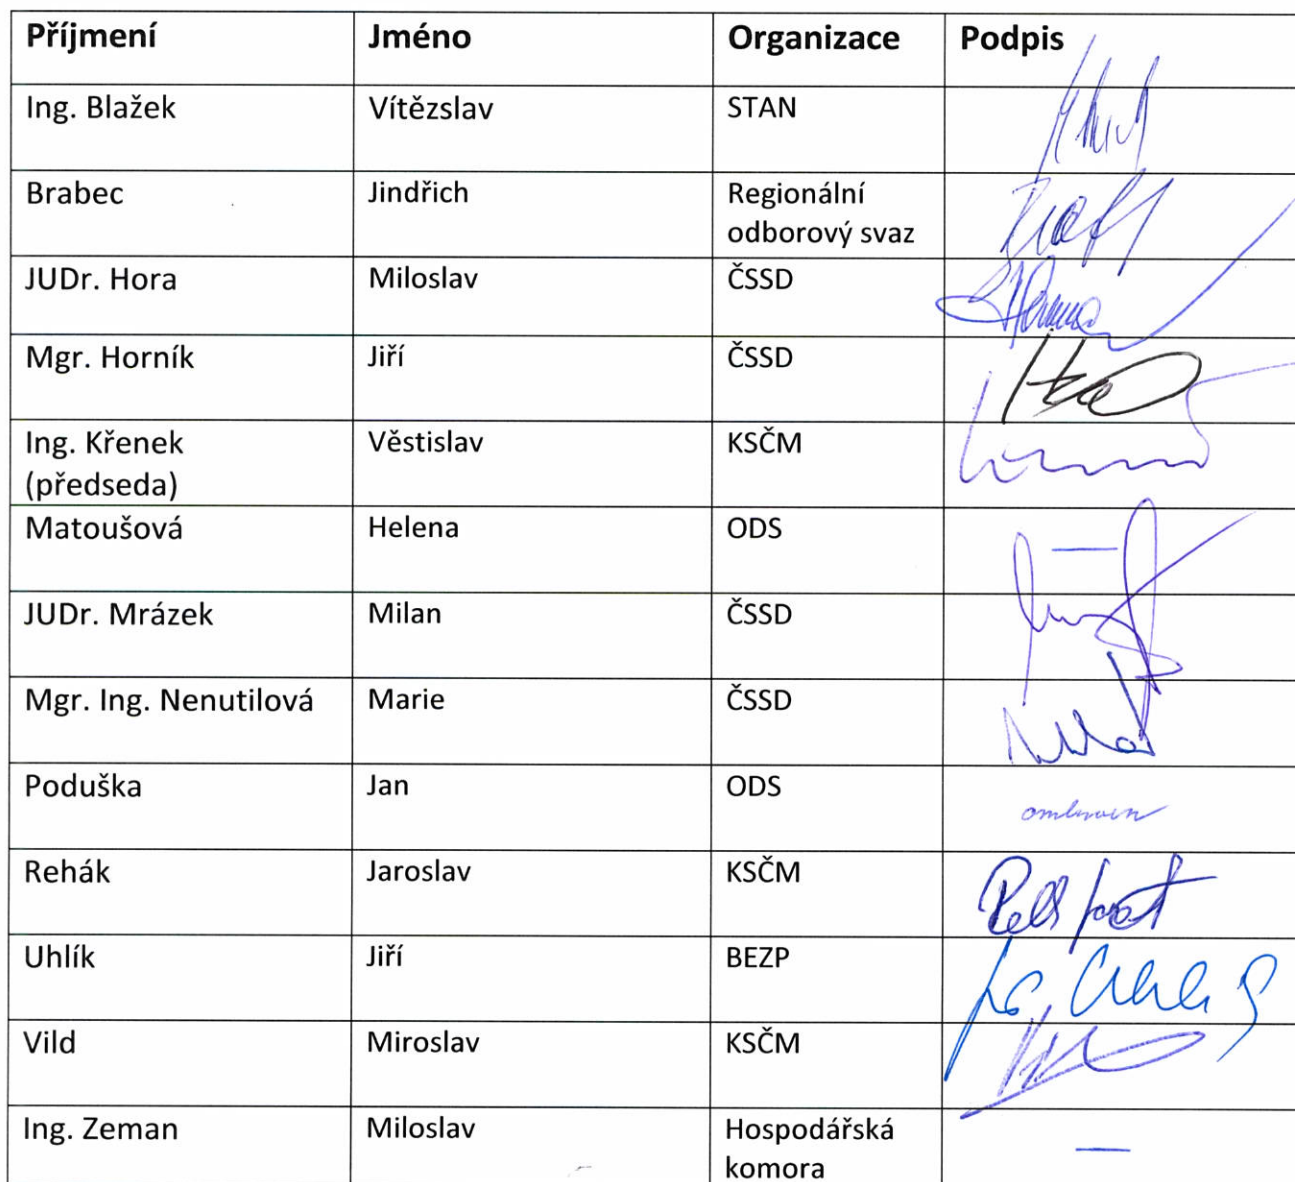 Příjmení Jméno Organizace Podpis
Ing. Blažek Vítězslav STAN
Brabec Jindřich Regionální
odborový svaz
JUDr. Hora Miloslav ČSSD
Mgr. Horník Jiří ČSSD
Ing. Křenek Věstislav KSČM
(předseda)
Matoušová Helena ODS —
JUDr. Mrázek Milan ČSSD
Mgr. Ing. Nenutilová Marie ČSSD
Poduška Jan ODS omluven
Rehák Jaroslav KSČM
Uhlík Jiří BEZP
Vild Miroslav KSČM
Ing. Zeman Miloslav Hospodářská —
komora